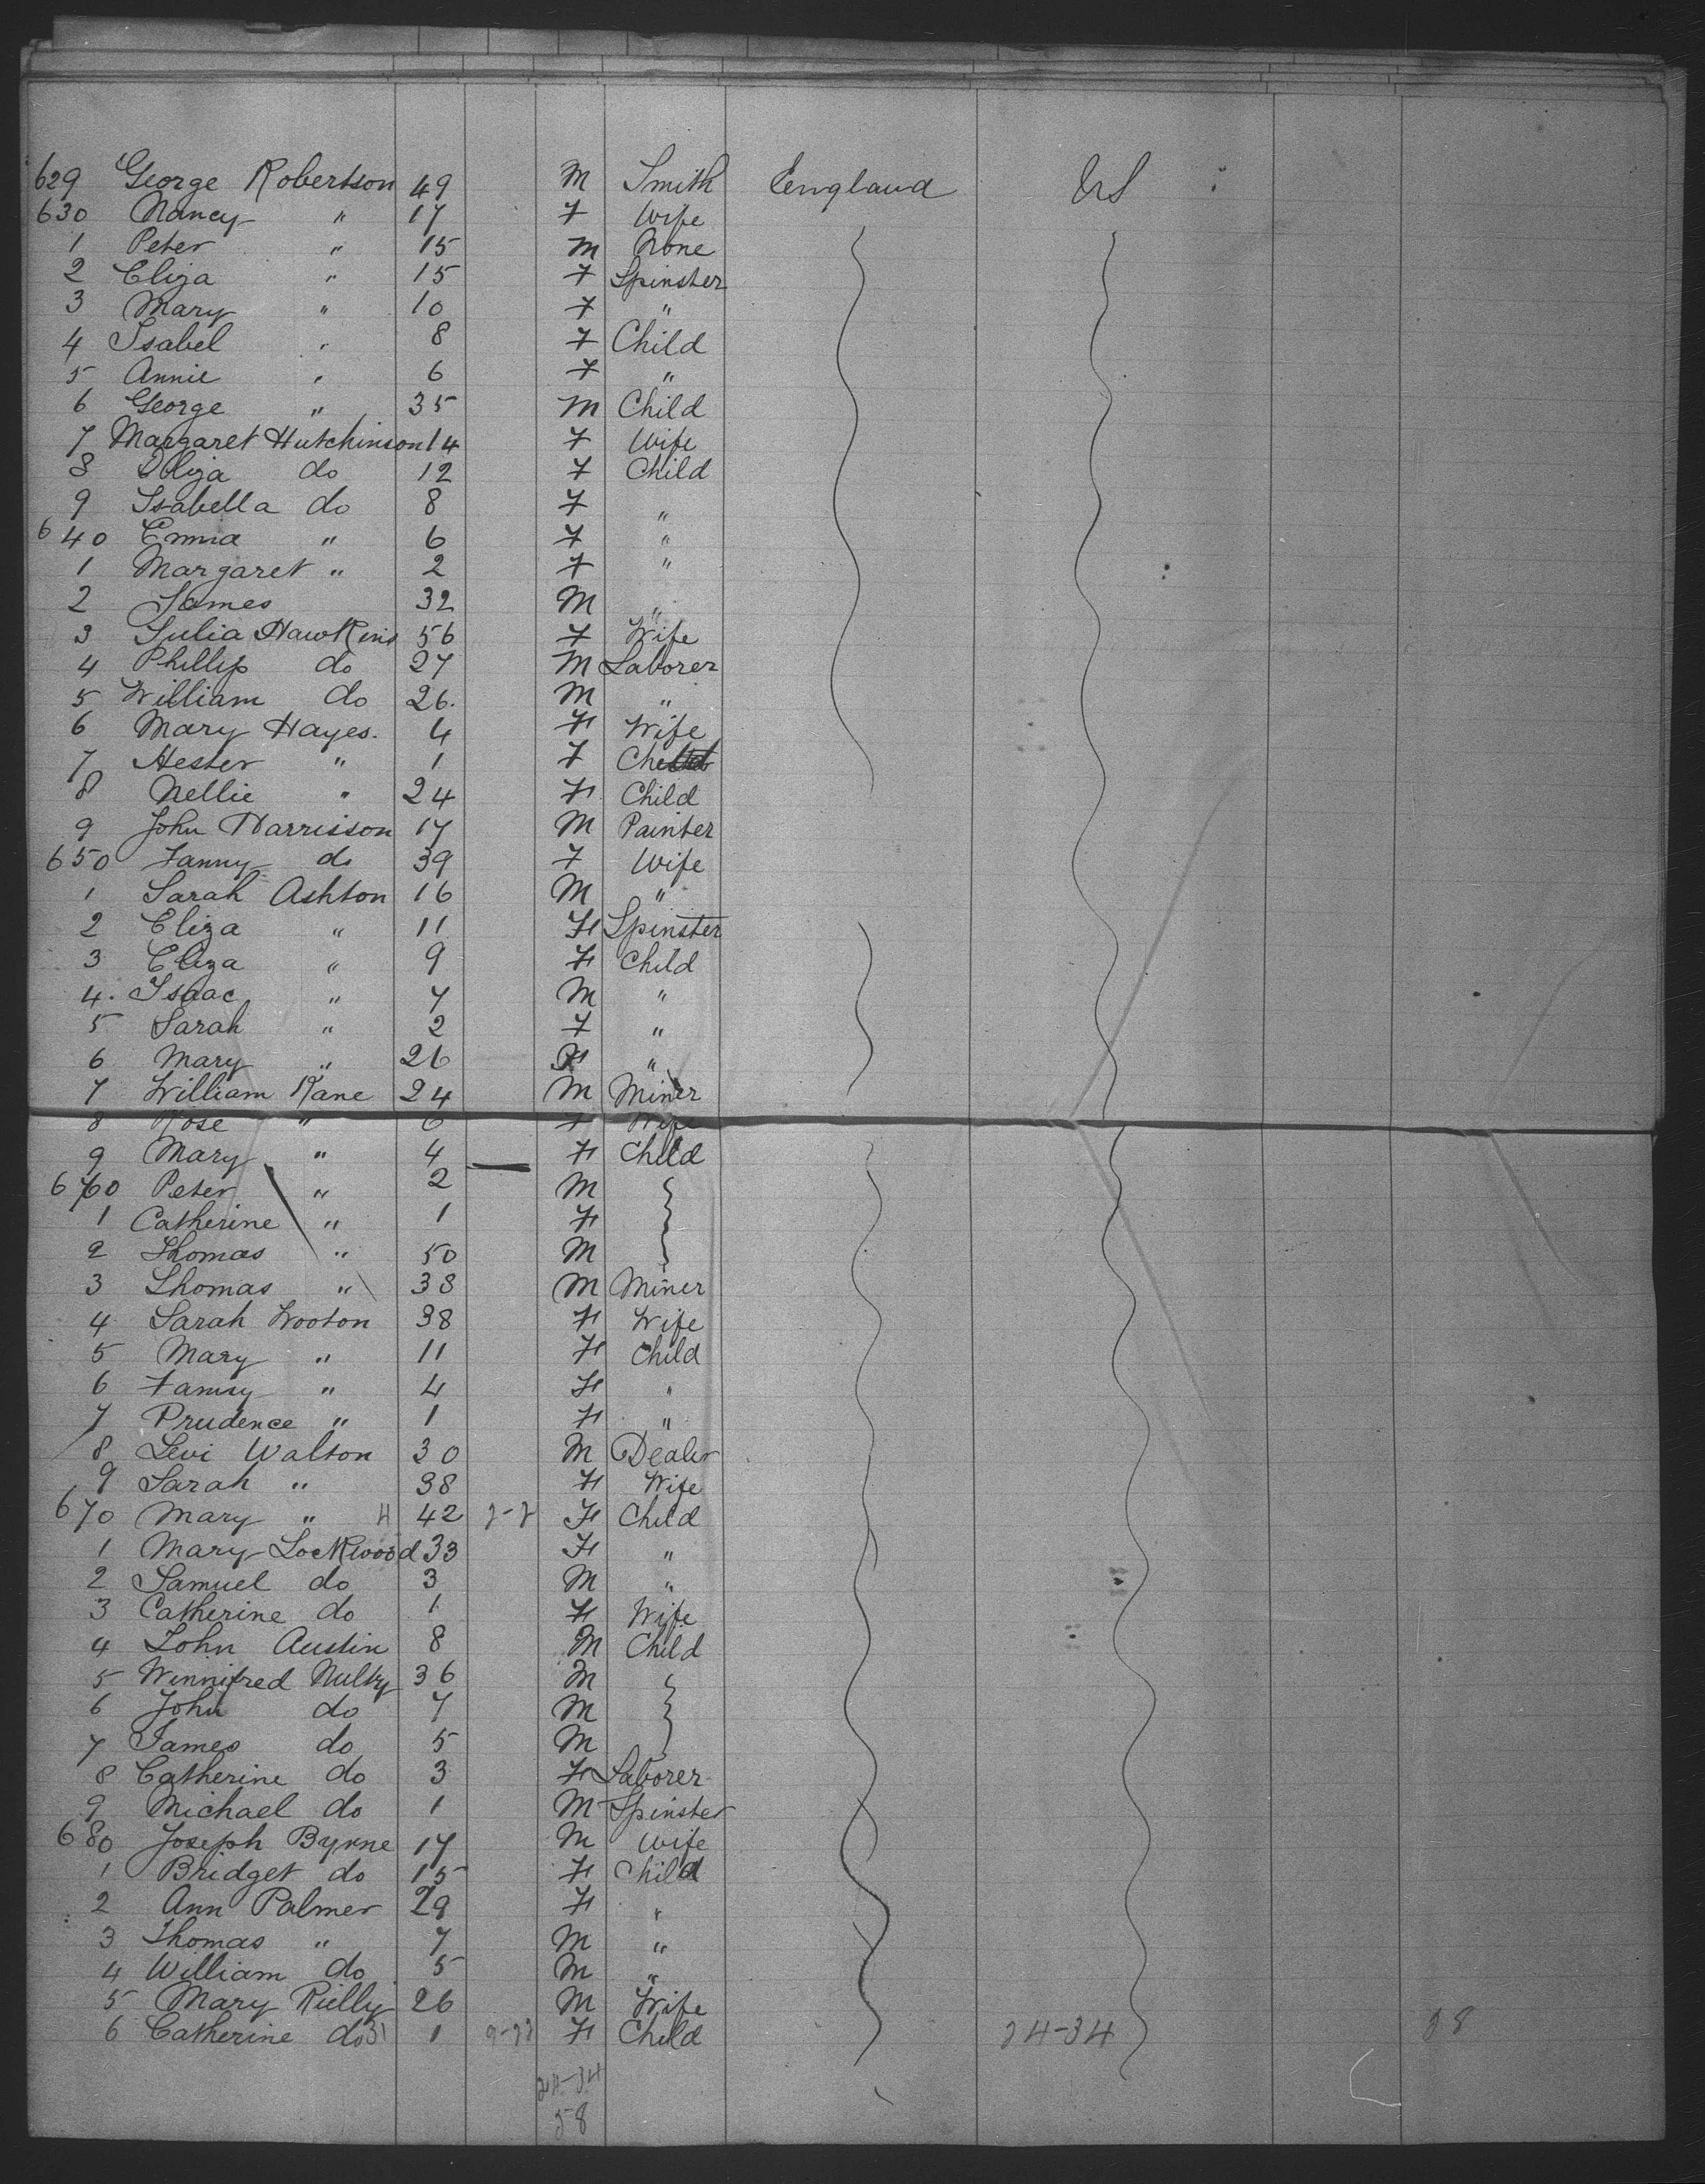 629 George Robertson 49 M Smith England US
630 Nancy " 17 F Wife
1 Peter " 15 M None
2 Eliza " 15 F Spinster
3 Mary " 10 F "
4 Isabel " 8 F Child
5 Annie " 6 F "
6 George " 35 M Child
7 Margaret Hutchinson 14 F Wife
8 Eliza do 12 F Child
9 Isabella do 8 F "
640 Emma " 6 F "
1 Margaret " 2 F "
2 James 32 M "
3 Julia Hawkins 56 F Wife
4 Phillip do 27 M Laborer
5 William do 26. M "
6 Mary Hayes. 4 F Wife
7 Hester " 1 F
8 Nellie " 24 F Child
9 John Harrisson 17 M Painter
650 Fanny do 39 F Wife
1 Sarah Ashton 16 M "
2 Eliza " 11 F Spinster
3 Eliza " 9 F Child
4. Isaac " 7 M "
5 Sarah " 2 F "
6 Mary " 26 F "
7 William Kane 24 M Miner
8 Rose " 6 F Wife
9 Mary " 4 F Child
660 Peter " 2 M
1 Catherine " 1 F
2 Thomas " 50 M
3 Thomas " 38 M Miner
4 Sarah Wooton 38 F Wife
5 Mary " 11 F Child
6 Fanny " 4 F "
7 Prudence " 1 F "
8 Levi Walton 30 M Dealer
9 Sarah " 38 F Wife
670 Mary " 42 F Child
1 Mary Lockwood 33 F "
2 Samuel do 3 M "
3 Catherine do 1 F Wife
4 John Austin 8 M Child
5 Winnifred Nulty 36 M
6 John do 7 M
7 James do 5 M
8 Catherine do 3 F Laborer
9 Michael do 1 M Spinster
680 Joseph Byrne 17 M Wife
1 Bridget do 15 F Child
2 Ann Palmer 29 F "
3 Thomas " 7 M "
4 William do 5 M "
5 Mary Rielly 26 M Wife
6 Catherine do 31 1 F Child 24-34 58
24-34
58